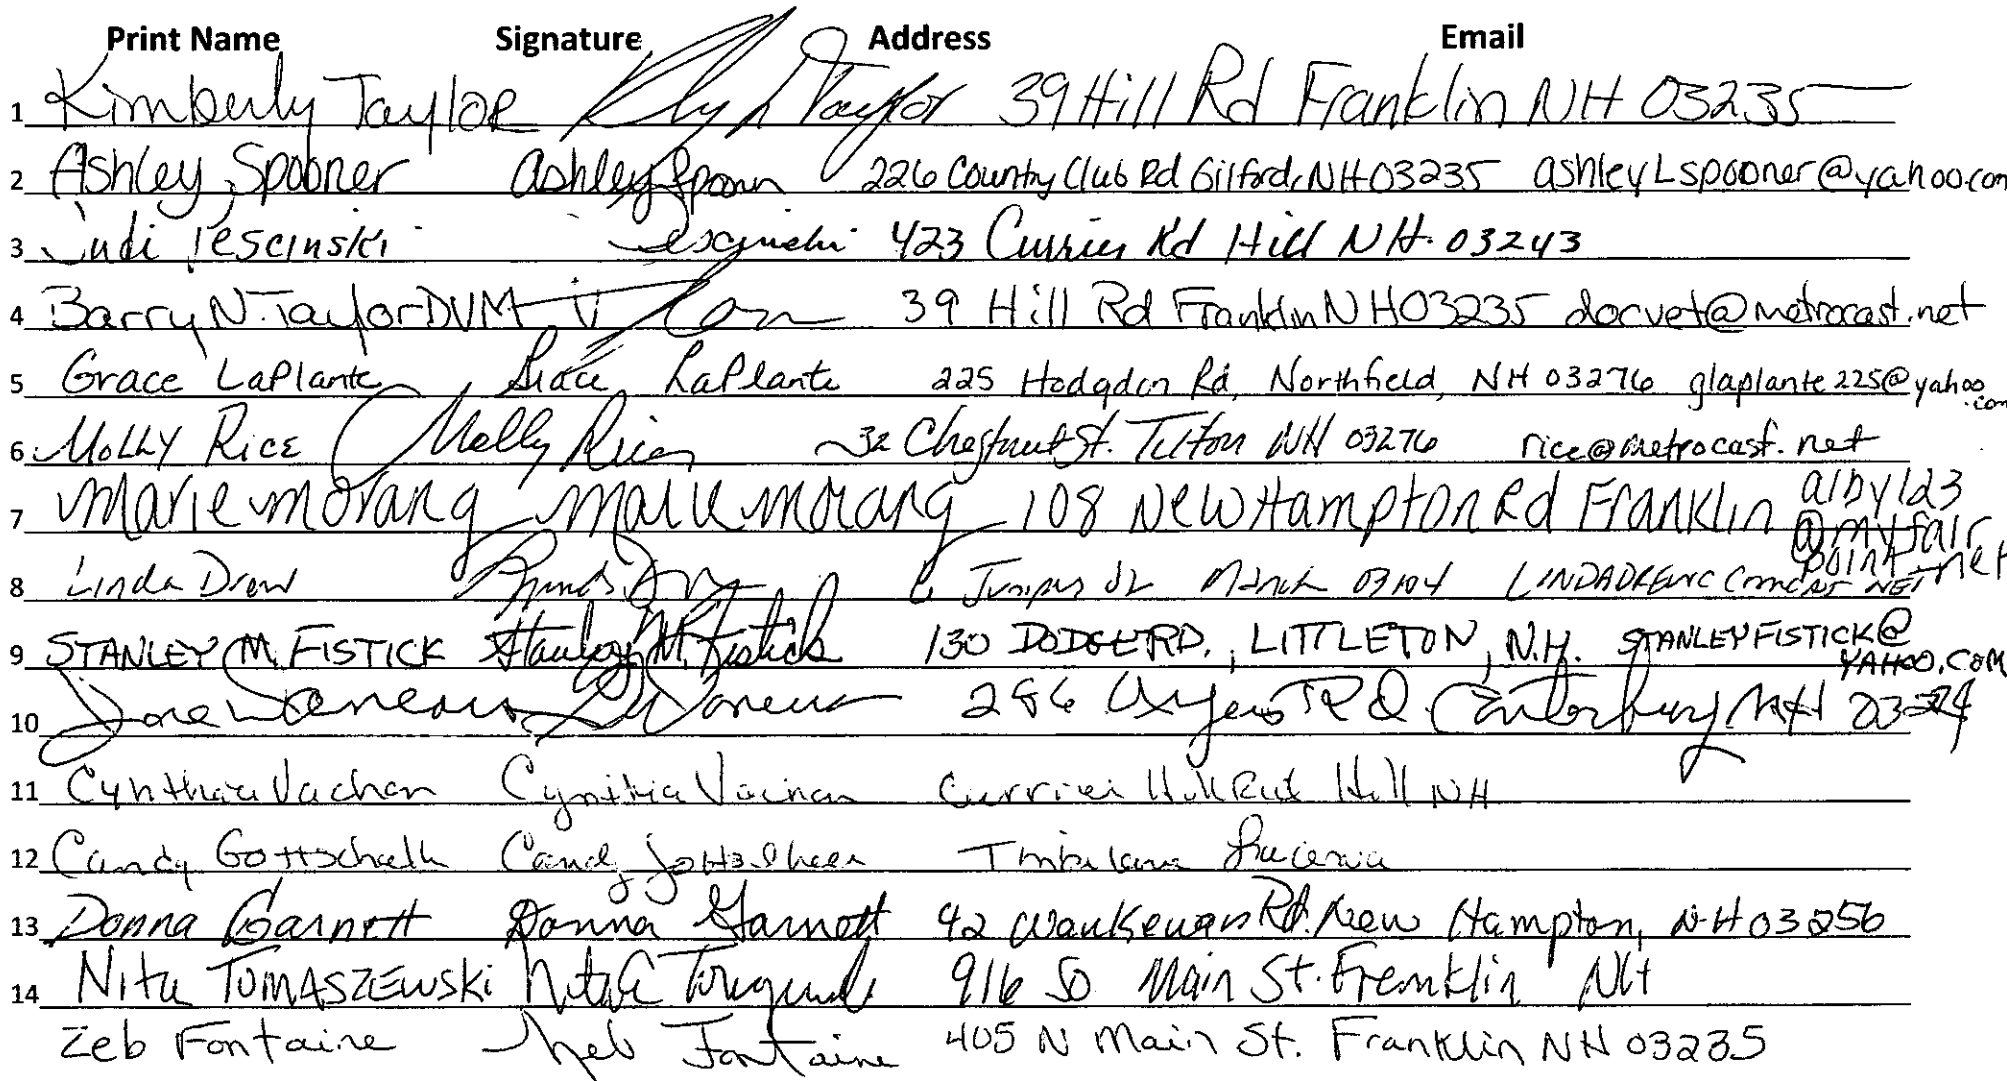 Print Name Signature Address Email
1 Kimberly Taylor Taylor 39 Hill Rd Franklin NH 03235
2 Ashley Spooner Ashley Spooner 226 Country Club Rd Gilford, NH 03235 ashleyLspooner@yahoo.com
3 Judi Tescinski 423 Currier Rd Hill NH. 03243
4 Barry N. Taylor DVM 39 Hill Rd Franklin NH 03235 docvet@metrocast.net
5 Grace LaPlante Grace LaPlante 225 Hodgdon Rd, Northfield, NH 03276 glaplante225@yahoo.com
6 Molly Rice Molly Rice 32 Chestnut St. Tilton NH 03276 rice@metrocast.net
7 Marie Morang Marie Morang 108 New Hampton Rd Franklin alby123
@myfair
point.net
8 Linda Drew 6 03104
9 STANLEY M. FISTICK Stanley M. Fistick 130 DODGE RD., LITTLETON, N.H. STANLEYFISTICK@
YAHOO.COM
10 286 Rd Canterbury NH
11 Cynthia Vachon Cynthia Vachon Currier Hill NH
12 Candy Gottschalk Candy
13 Donna Garnett Donna Garnett 92 Waukewan Rd. New Hampton, NH 03256
14 Nita TOMASZEWSKI 916 So Main St. Franklin NH
Zeb Fontaine Zeb Fontaine 405 N Main St. Franklin NH 03235